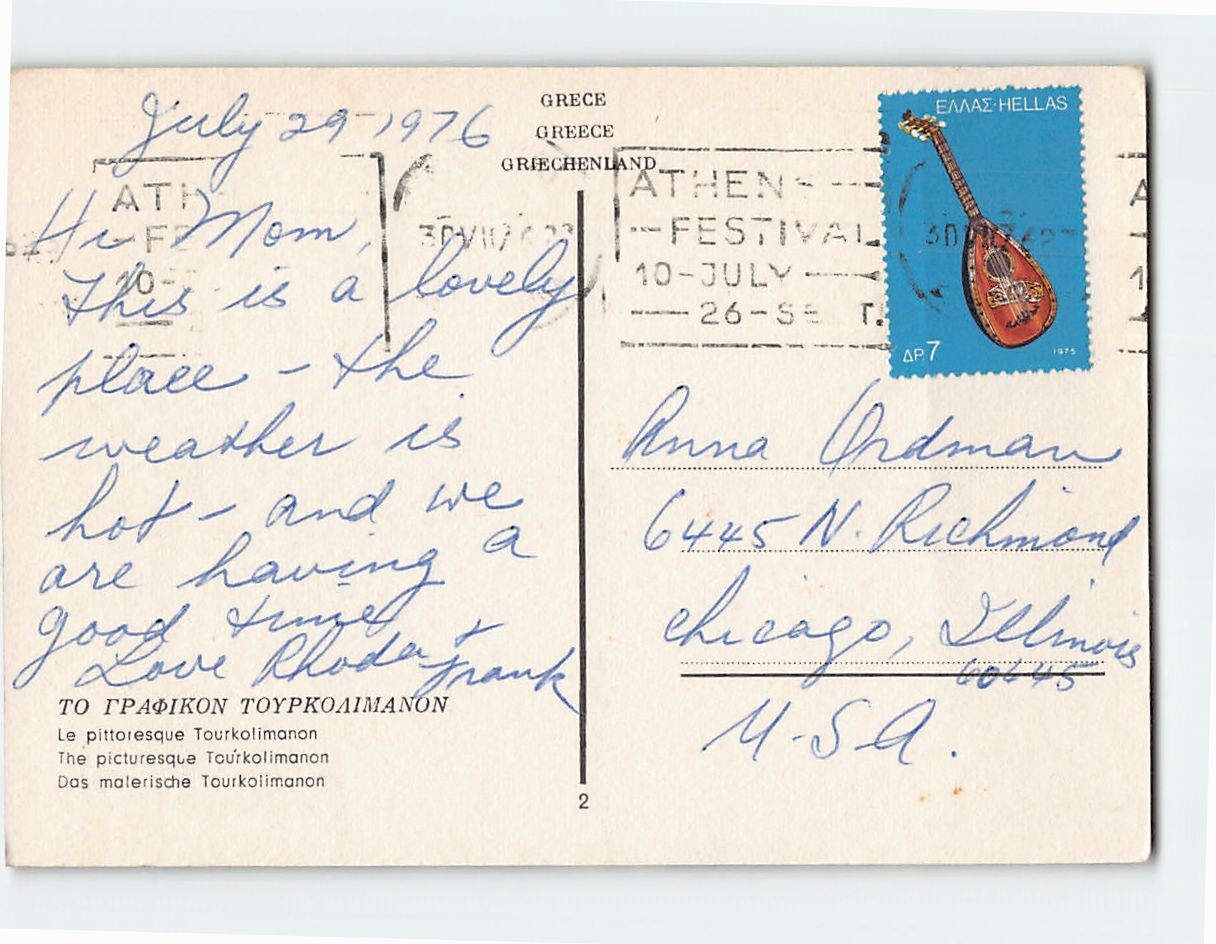 July 29-1976
Hi Mom,
This is a lovely
place - the
weather is
hot - and we
are having a
good time
Love Rhoda +
Frank
ΤΟ ΓΡΑΦΙΚΟΝ ΤΟΥΡΚΟΛΙΜΑΝΟΝ
Le pittoresque Tourkolimanon
The picturesque Tourkolimanon
Das malerische Tourkolimanon
GRECE
GREECE
GRIECHENLAND
2
ATH
FE
10-
ATHENS
FESTIVAL
10-JULY
26-SE T.
ΕΛΛΑΣ·HELLAS
ΔΡ.7
1975
Anna Ordman
6445 N. Richmond
Chicago, Illinois
60645
U-S-A.